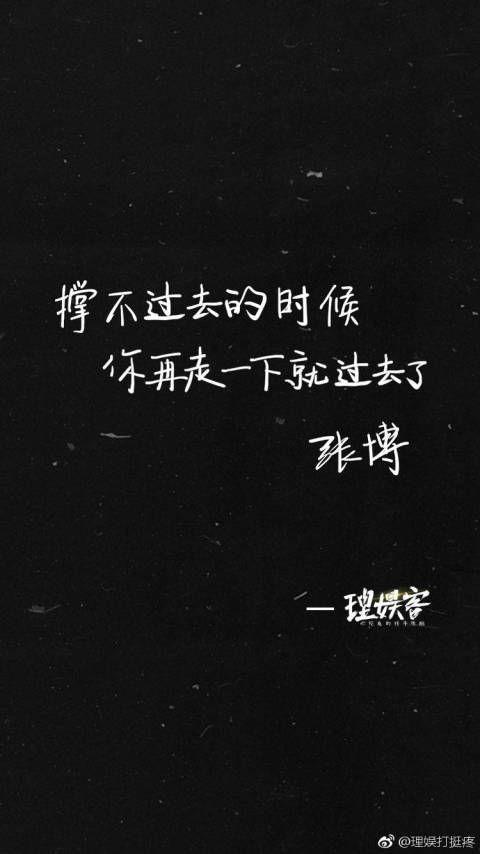 撑不过去的时候
你再走一下就过去了
张博
— 理娱客
@理娱打挺疼